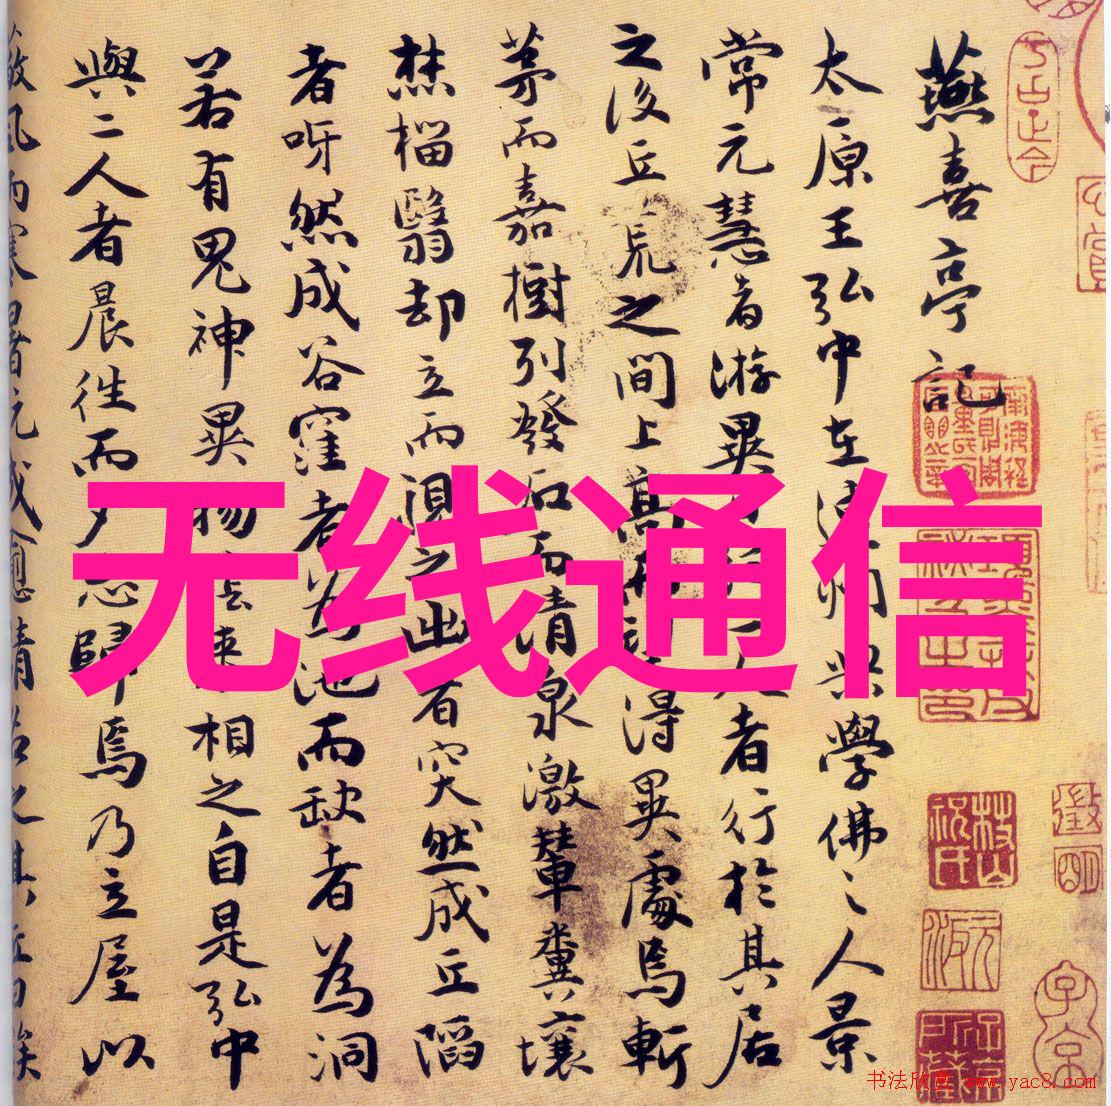 燕喜亭記
太原王弘中在連州與學佛之人景
常元慧者游異日從二人者行於其居
之後丘荒之間上高而望得異處焉斬
茅而嘉樹列發石而清泉激輦糞壤
燔椔翳却立而視之出者突然成丘陷
者呀然成谷窪者為池而缺者為洞
若有鬼神異物陰來相之自是弘中
與二人者晨往而夕忘歸焉乃立屋以
无线通信
書法欣賞 www.yac8.com